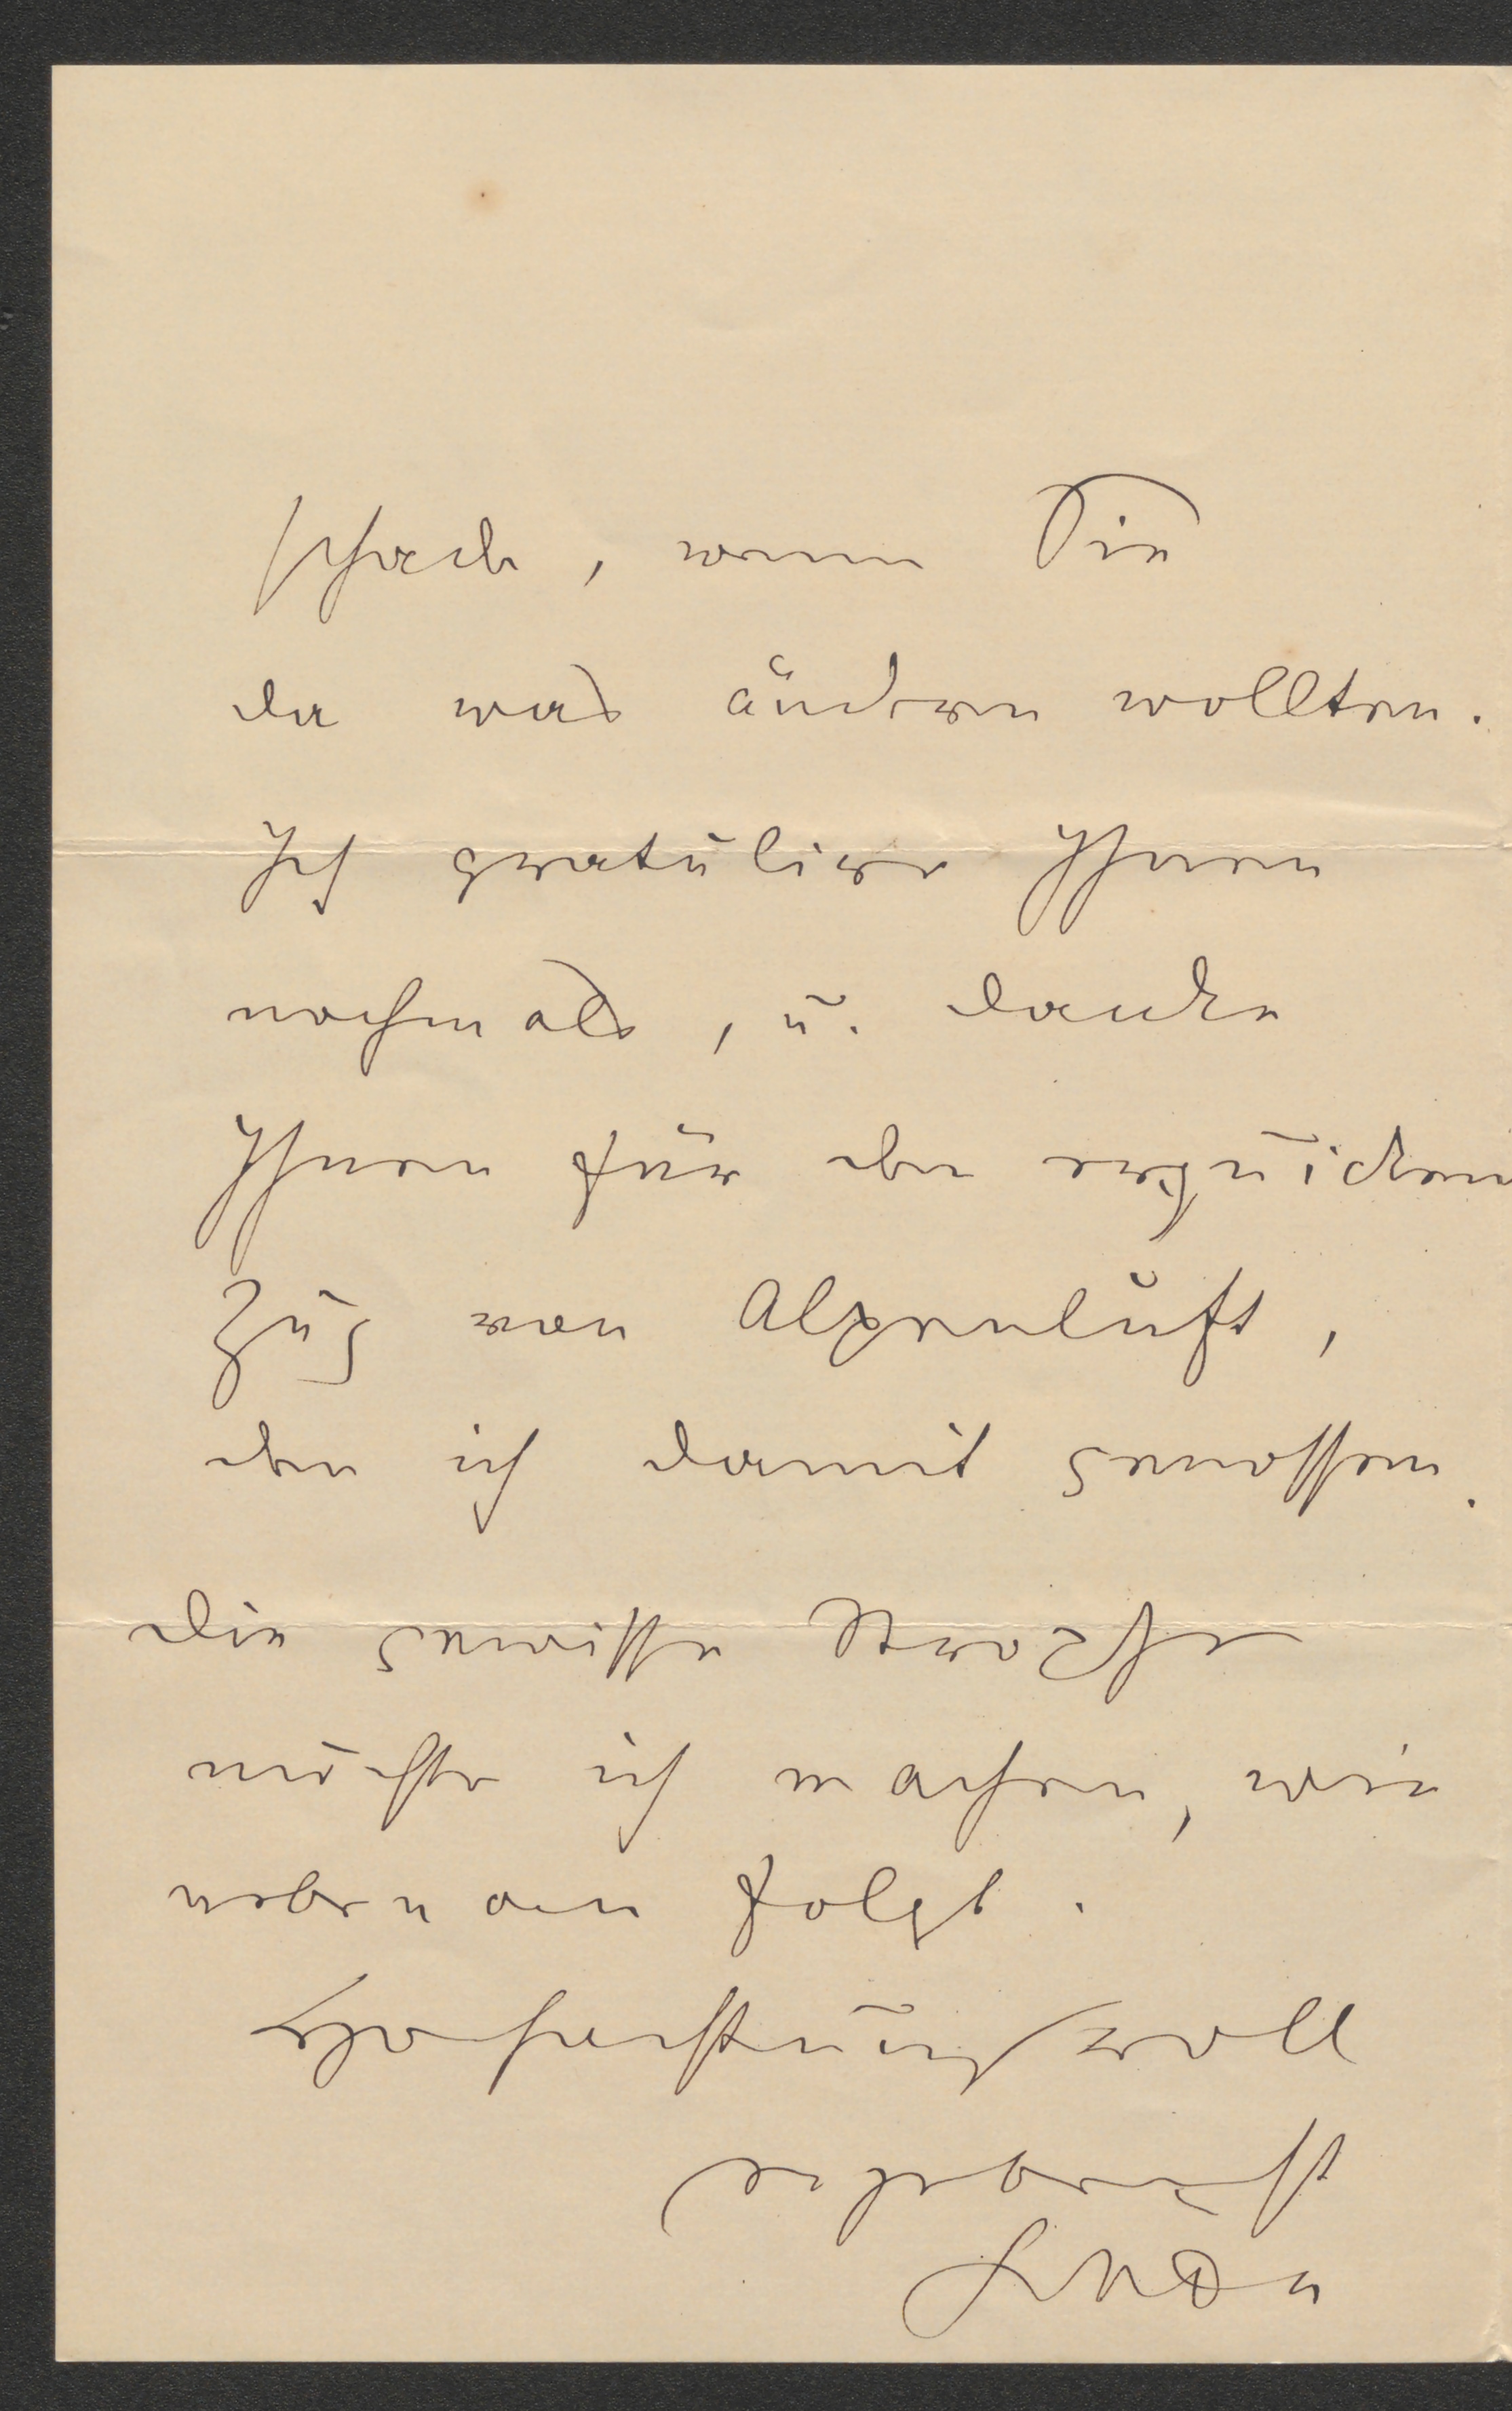 schade, wenn Sie
da was ändern wollten.
Ich gratulire Ihnen
nochmals, u. danke
Ihnen für den erquicken
Zug von Alpenluft,
den ich damit genossen.
Die gewisse Strophe
möchte ich machen, wie
neben an folgt.
Hochachtungsvoll
ergebenst